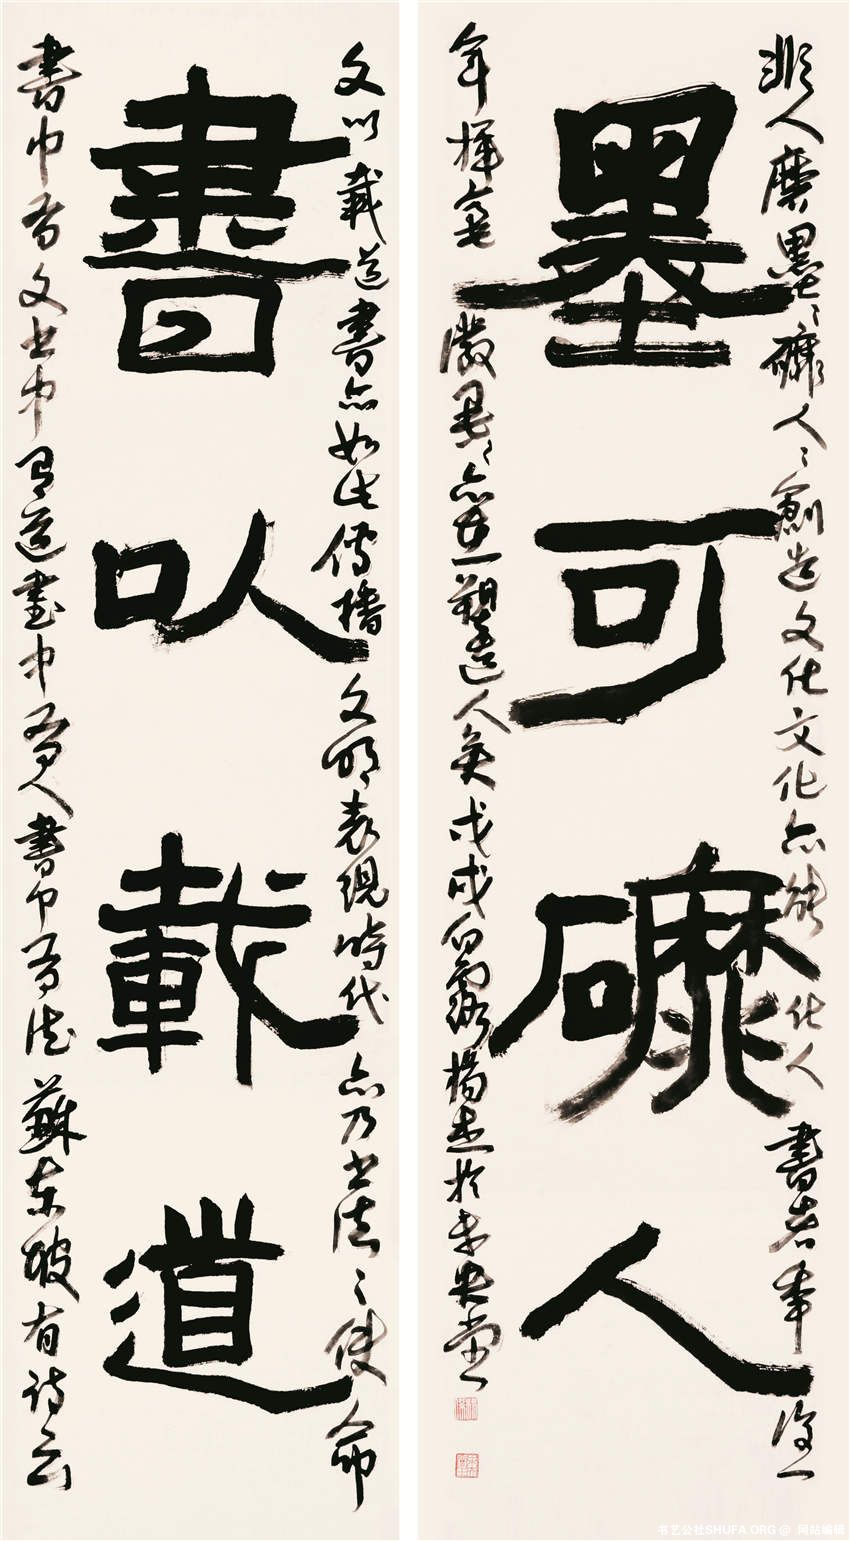 書以載道
文以載道書亦如此傳播文明表現時代亦乃书法之使命
書中有文书中有道書中有人書中有法蘇東坡有詩云
墨可礳人
非人磨墨〻礳人〻創造文化文化亦能化人書者年復一
年揮毫潑墨〻亦在塑造人矣戊戌白露楊杰於未央堂
书艺公社SHUFA.ORG @ 网站编辑